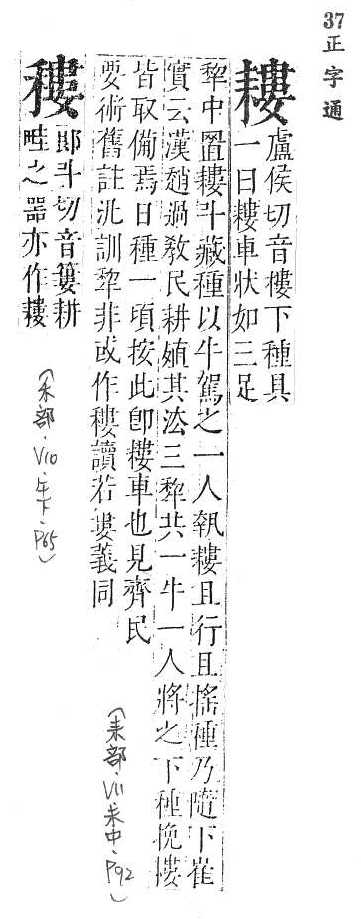 37正字通
耬 盧侯切音樓下種具
一曰耬車狀如三足
犂中置耬斗藏種以牛駕之一人執耬且行且搖種乃隨下崔
實云漢趙過敎民耕殖其法三犂共一牛一人將之下種挽耬
皆取備焉日種一頃按此卽耬車也見齊民
要術舊註汎訓犂非或作䅹讀若婁義同
(耒部.V11.未中.P92)
䅹 郎斗切音簍耕
畦之器亦作耬
(禾部.V10.午下.P65)